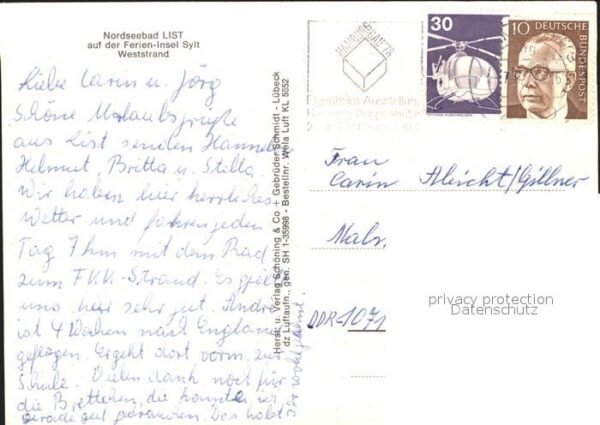 Nordseebad LIST
auf der Ferien-Insel Sylt
Weststrand
Liebe Carin u. Jörg
Schöne Urlaubsgrüße
aus List senden Hannelore
Helmut, Britta u. Stella.
Wir haben hier herrliches
Wetter und fahren jeden
Tag 7 km mit dem Rad
zum FKK-Strand. Es gefällt
uns hier sehr gut. André
ist 4 Wochen nach England
geflogen. Er geht dort vorm. zur
Schule. Vielen Dank noch für
die Brettchen, die konnten wir
gerade gut gebrauchen. Das habt
Ihr
Herst. u. Verlag Schöning & Co + Gebrüder Schmidt - Lübeck
dz Luftaufn., gen. SH 1-35998 - Bestellnr. Wela Luft KL 5852
HAMBURGBAU 78
Eigenheim Ausstellung
30
10
DEUTSCHE
BUNDESPOST
Frau
Carin
Malr.
DDR-1071
privacy protection
Datenschutz